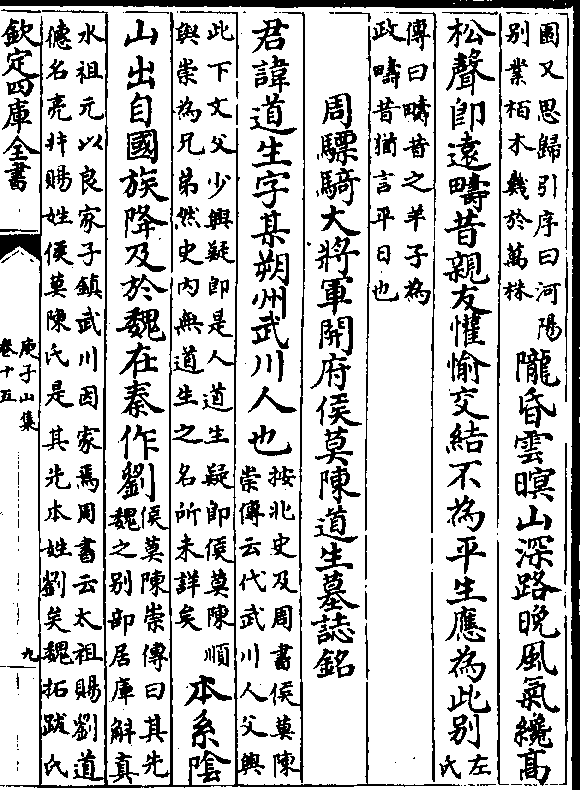 園又思歸引序曰河陽
別業栢木幾於萬株
隴昏雲暝山深路晚風氣纔高
松聲卽遠疇昔親友懽愉交結不為平生應為此別
左
氏
傳曰疇昔之羊子為
政疇昔猶言平日也
周驃騎大將軍開府侯莫陳道生墓誌銘
君諱道生字某朔州武川人也
按北史及周書侯莫陳
崇傳云代武川人父興
此下文父少興疑卽是人道生疑卽侯莫陳順
與崇為兄弟然史内無道生之名所未詳矣
本系陰
山出自國族降及於魏在秦作劉
侯莫陳崇傳曰其先
魏之别部居庫斛真
水祖元以良家子鎮武川因家焉周書云太祖賜劉道
德名亮幷賜姓侯莫陳氏是其先本姓劉矣魏拓跋氏
欽定四庫全書
庾子山集
卷十五
九